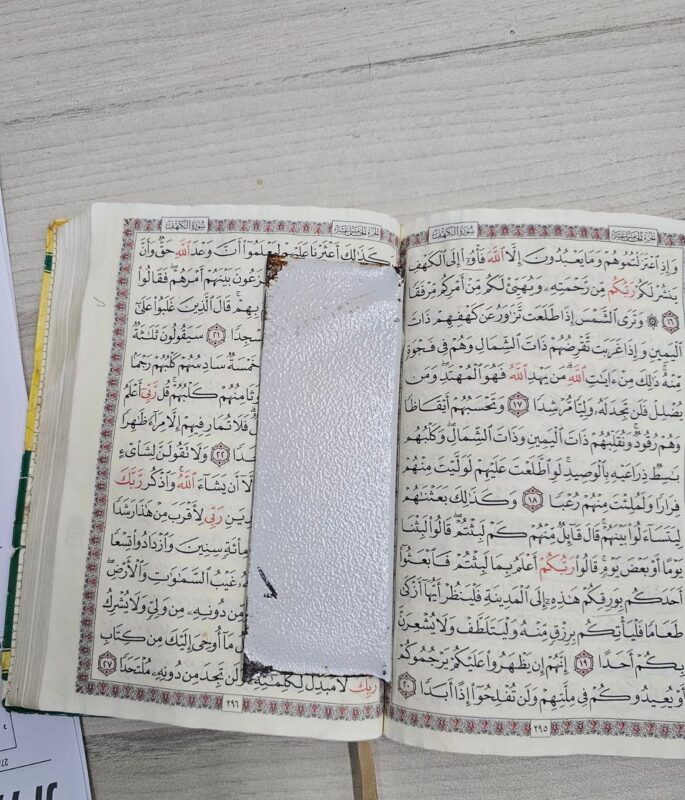 سُورَةُ الكَهْفِ
الجُزْءُ الخَامِسَ عَشَرَ
وَإِذِ ٱعۡتَزَلۡتُمُوهُمۡ وَمَا يَعۡبُدُونَ إِلَّا ٱللَّهَ فَأۡوُۥٓاْ إِلَى ٱلۡكَهۡفِ
يَنشُرۡ لَكُمۡ رَبُّكُم مِّن رَّحۡمَتِهِۦ وَيُهَيِّئۡ لَكُم مِّنۡ أَمۡرِكُم مِّرۡفَقٗا
١٦ ۞ وَتَرَى ٱلشَّمۡسَ إِذَا طَلَعَت تَّزَٰوَرُ عَن كَهۡفِهِمۡ ذَاتَ
ٱلۡيَمِينِ وَإِذَا غَرَبَت تَّقۡرِضُهُمۡ ذَاتَ ٱلشِّمَالِ وَهُمۡ فِي فَجۡوَةٖ
مِّنۡهُۚ ذَٰلِكَ مِنۡ ءَايَٰتِ ٱللَّهِۗ مَن يَهۡدِ ٱللَّهُ فَهُوَ ٱلۡمُهۡتَدِۖ وَمَن
يُضۡلِلۡ فَلَن تَجِدَ لَهُۥ وَلِيّٗا مُّرۡشِدٗا ١٧ وَتَحۡسَبُهُمۡ أَيۡقَاظٗا
وَهُمۡ رُقُودٞۚ وَنُقَلِّبُهُمۡ ذَاتَ ٱلۡيَمِينِ وَذَاتَ ٱلشِّمَالِۖ وَكَلۡبُهُم
بَٰسِطٞ ذِرَاعَيۡهِ بِٱلۡوَصِيدِۚ لَوِ ٱطَّلَعۡتَ عَلَيۡهِمۡ لَوَلَّيۡتَ مِنۡهُمۡ
فِرَارٗا وَلَمُلِئۡتَ مِنۡهُمۡ رُعۡبٗا ١٨ وَكَذَٰلِكَ بَعَثۡنَٰهُمۡ
لِيَتَسَآءَلُواْ بَيۡنَهُمۡۚ قَالَ قَآئِلٞ مِّنۡهُمۡ كَمۡ لَبِثۡتُمۡۖ قَالُواْ لَبِثۡنَا
يَوۡمًا أَوۡ بَعۡضَ يَوۡمٖۚ قَالُواْ رَبُّكُمۡ أَعۡلَمُ بِمَا لَبِثۡتُمۡ فَٱبۡعَثُوٓاْ
أَحَدَكُم بِوَرِقِكُمۡ هَٰذِهِۦٓ إِلَى ٱلۡمَدِينَةِ فَلۡيَنظُرۡ أَيُّهَآ أَزۡكَىٰ
طَعَامٗا فَلۡيَأۡتِكُم بِرِزۡقٖ مِّنۡهُ وَلۡيَتَلَطَّفۡ وَلَا يُشۡعِرَنَّ
بِكُمۡ أَحَدًا ١٩ إِنَّهُمۡ إِن يَظۡهَرُواْ عَلَيۡكُمۡ يَرۡجُمُوكُمۡ
أَوۡ يُعِيدُوكُمۡ فِي مِلَّتِهِمۡ وَلَن تُفۡلِحُوٓاْ إِذًا أَبَدٗا ٢٠
٢٩٥
الجُزْءُ الخَامِسَ عَشَرَ
سُورَةُ الكَهْفِ
كَذَٰلِكَ أَعۡثَرۡنَا عَلَيۡهِمۡ لِيَعۡلَمُوٓاْ أَنَّ وَعۡدَ ٱللَّهِ حَقّٞ وَأَنَّ
بَيۡنَهُمۡ أَمۡرَهُمۡۖ فَقَالُواْ
بِهِمۡۚ قَالَ ٱلَّذِينَ غَلَبُواْ عَلَىٰٓ
٢١ سَيَقُولُونَ ثَلَٰثَةٞ
خَمۡسَةٞ سَادِسُهُمۡ كَلۡبُهُمۡ رَجۡمَۢا
وَثَامِنُهُمۡ كَلۡبُهُمۡۚ قُل رَّبِّيٓ أَعۡلَمُ
فَلَا تُمَارِ فِيهِمۡ إِلَّا مِرَآءٗ ظَٰهِرٗا
٢٢ وَلَا تَقُولَنَّ لِشَاْيۡءٍ
أَن يَشَآءَ ٱللَّهُۚ وَٱذۡكُر رَّبَّكَ
رَبِّي لِأَقۡرَبَ مِنۡ هَٰذَا رَشَدٗا
مِاْئَةٖ سِنِينَ وَٱزۡدَادُواْ تِسۡعٗا
غَيۡبُ ٱلسَّمَٰوَٰتِ وَٱلۡأَرۡضِۖ
مِّن دُونِهِۦ مِن وَلِيّٖ وَلَا يُشۡرِكُ
مَآ أُوحِيَ إِلَيۡكَ مِن كِتَابِ
رَبِّكَۖ لَا مُبَدِّلَ لِكَلِمَٰتِهِۦ وَلَن تَجِدَ مِن دُونِهِۦ مُلۡتَحَدٗا ٢٧
٢٩٦